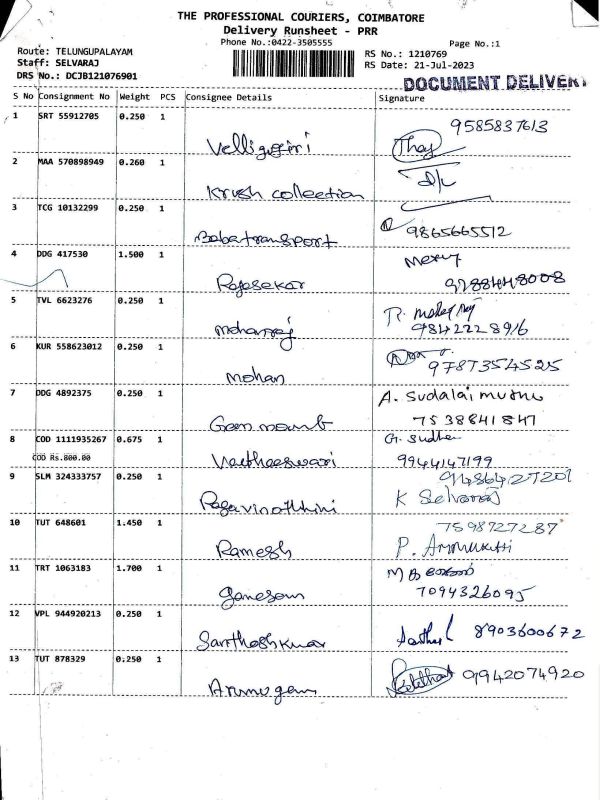 THE PROFESSIONAL COURIERS, COIMBATORE
Delivery Runsheet - PRR
Phone No.:0422-3505555
Page No.:1
Route: TELUNGUPALAYAM
Staff: SELVARAJ
DRS No.: DCJB121076901
RS No.: 1210769
RS Date: 21-Jul-2023
DOCUMENT DELIVERY
S No Consignment No Weight PCS Consignee Details Signature
1 SRT 55912705 0.250 1
9585837613
Velligugiri
2 MAA 570898949 0.260 1
Krush collection
3 TCG 10132299 0.250 1
9865665512
Baba transport
4 DDG 417530 1.500 1
Rajasekar
5 TVL 6623276 0.250 1
9842228916
Mohanraj
6 KUR 558623012 0.250 1
9787354525
Mohan
7 DDG 4892375 0.250 1
A. Sudalai muthu
7538841847
8 COD 1111935267 0.675 1
G. Sudha
COD Rs.800.00
9944147199
9 SLM 324333757 0.250 1
K Selvaraj
10 TUT 648601 1.450 1
7598727287
Ramesh
11 TRT 1063183 1.700 1
7094326095
Ganesan
12 VPL 944920213 0.250 1
8903600672
Santhoshkumar
13 TUT 878329 0.250 1
9942074920
Arumugam